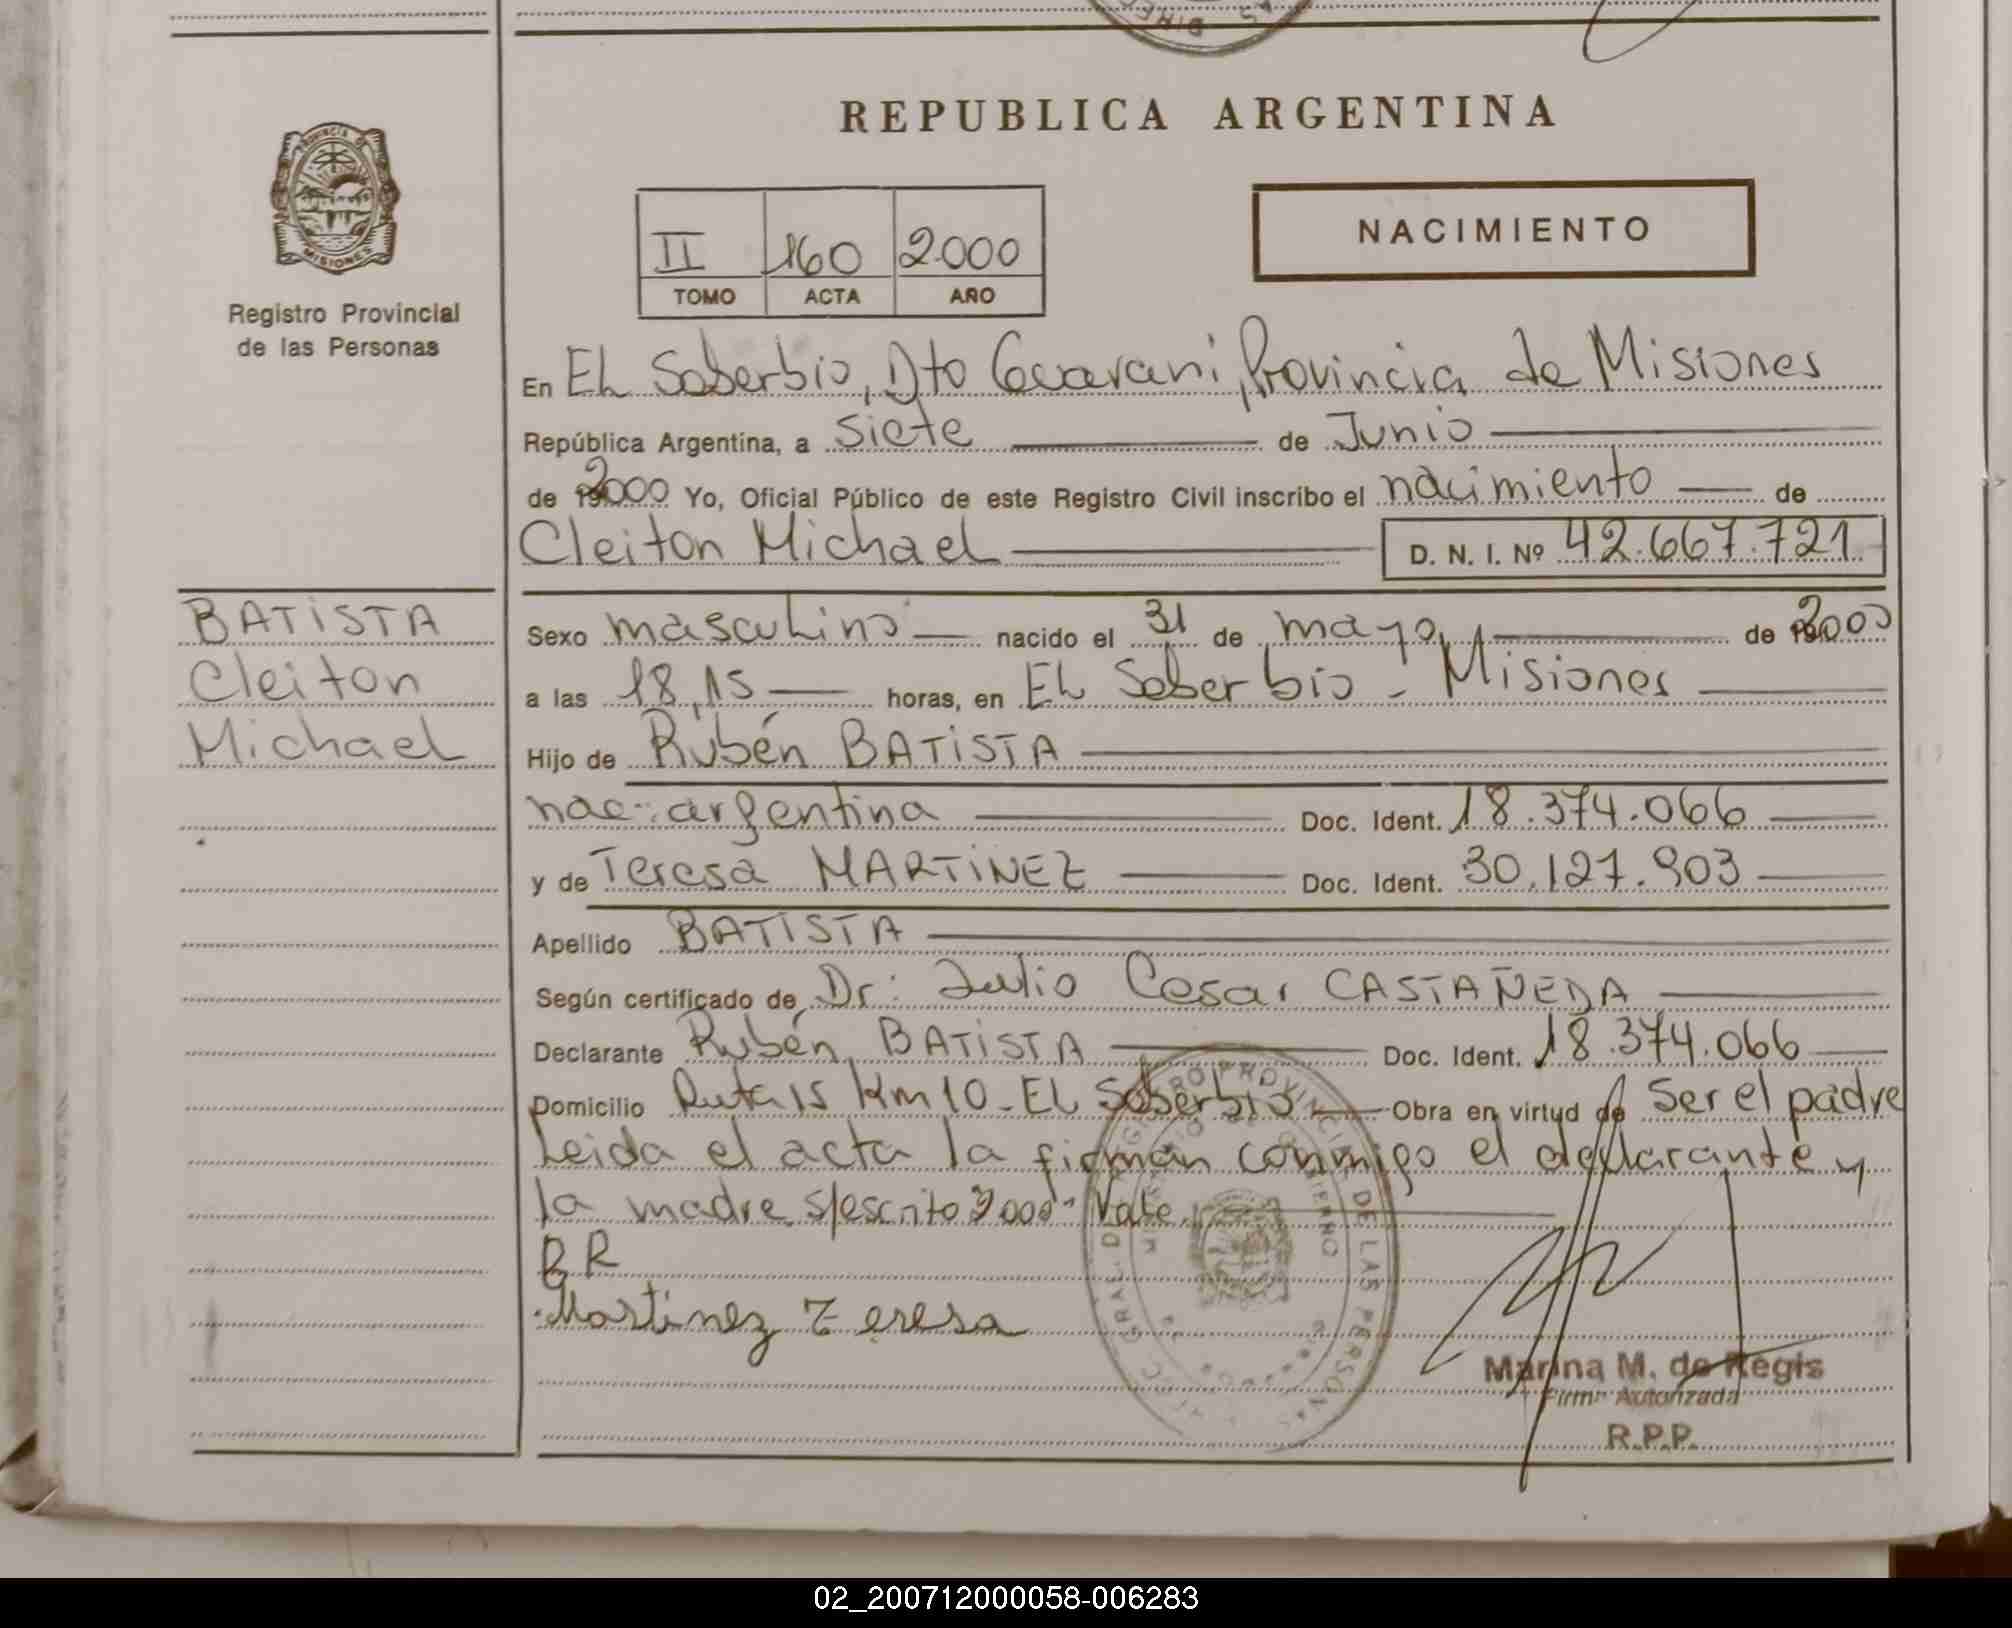 REPUBLICA ARGENTINA
II 160 2000
TOMO ACTA AÑO
NACIMIENTO
PROVINCIA DE MISIONES
Registro Provincial
de las Personas
En El Soberbio, Dto Guarani, Provincia de Misiones
República Argentina, a siete de Junio
de 2000 Yo, Oficial Público de este Registro Civil inscribo el nacimiento de
Cleiton Michael D. N. I. Nº 42.667.721
BATISTA
Cleiton
Michael
Sexo masculino nacido el 31 de mayo de 2000
a las 18,15 horas, en El Soberbio - Misiones
Hijo de Rubén BATISTA
nac: argentina Doc. Ident. 18.374.066
y de Teresa MARTINEZ Doc. Ident. 30.127.903
Apellido BATISTA
Según certificado de Dr: Julio Cesar CASTAÑEDA
Declarante Rubén BATISTA Doc. Ident. 18.374.066
Domicilio Ruta 15 Km 10 - El Soberbio Obra en virtud de ser el padre
Leida el acta la firman conmigo el declarante y
la madre s/escrito 2000- Vale.
B R
Martinez Teresa
REGISTRO PROVINCIAL DE LAS PERSONAS
Marina M. de Regis
Firma Autorizada
R.P.P.
02_200712000058-006283